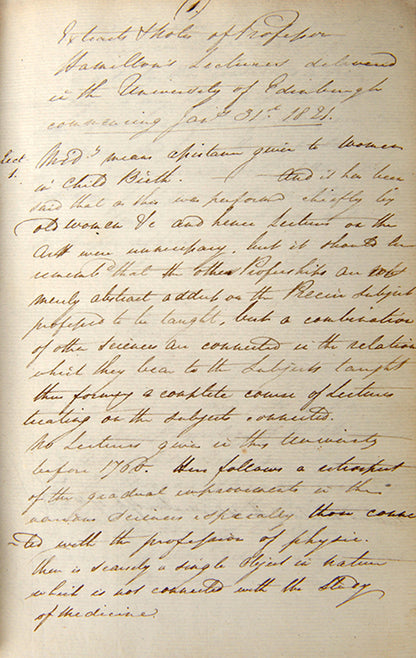 (1)
Extracts & Notes of Professor
Hamilton's Lectures delivered
in the University of Edinburgh
commencing Jany 31st 1821.
Lect
1.
Midy means assistance given to women
in Child Birth. And it has been
said that as this was performed chiefly by
old women &c and hence Lectures on the
Art were unnecessary, but it should be
rememberd that the other Professorships are not
merely abstract on the Precise subject
professed to be taught, but a combination
of other sciences are connected in the relation
which they bear to the subjects taught
thus forming a complete course of Lectures
treating on the subject connected.
No Lectures given in this University
before 1756. Here follows a retrospect
of the gradual improvements in the
various sciences especially those connec
-ted with the profession of physic.
there is scarcely a single object in nature
which is not connected with the study
of medicine